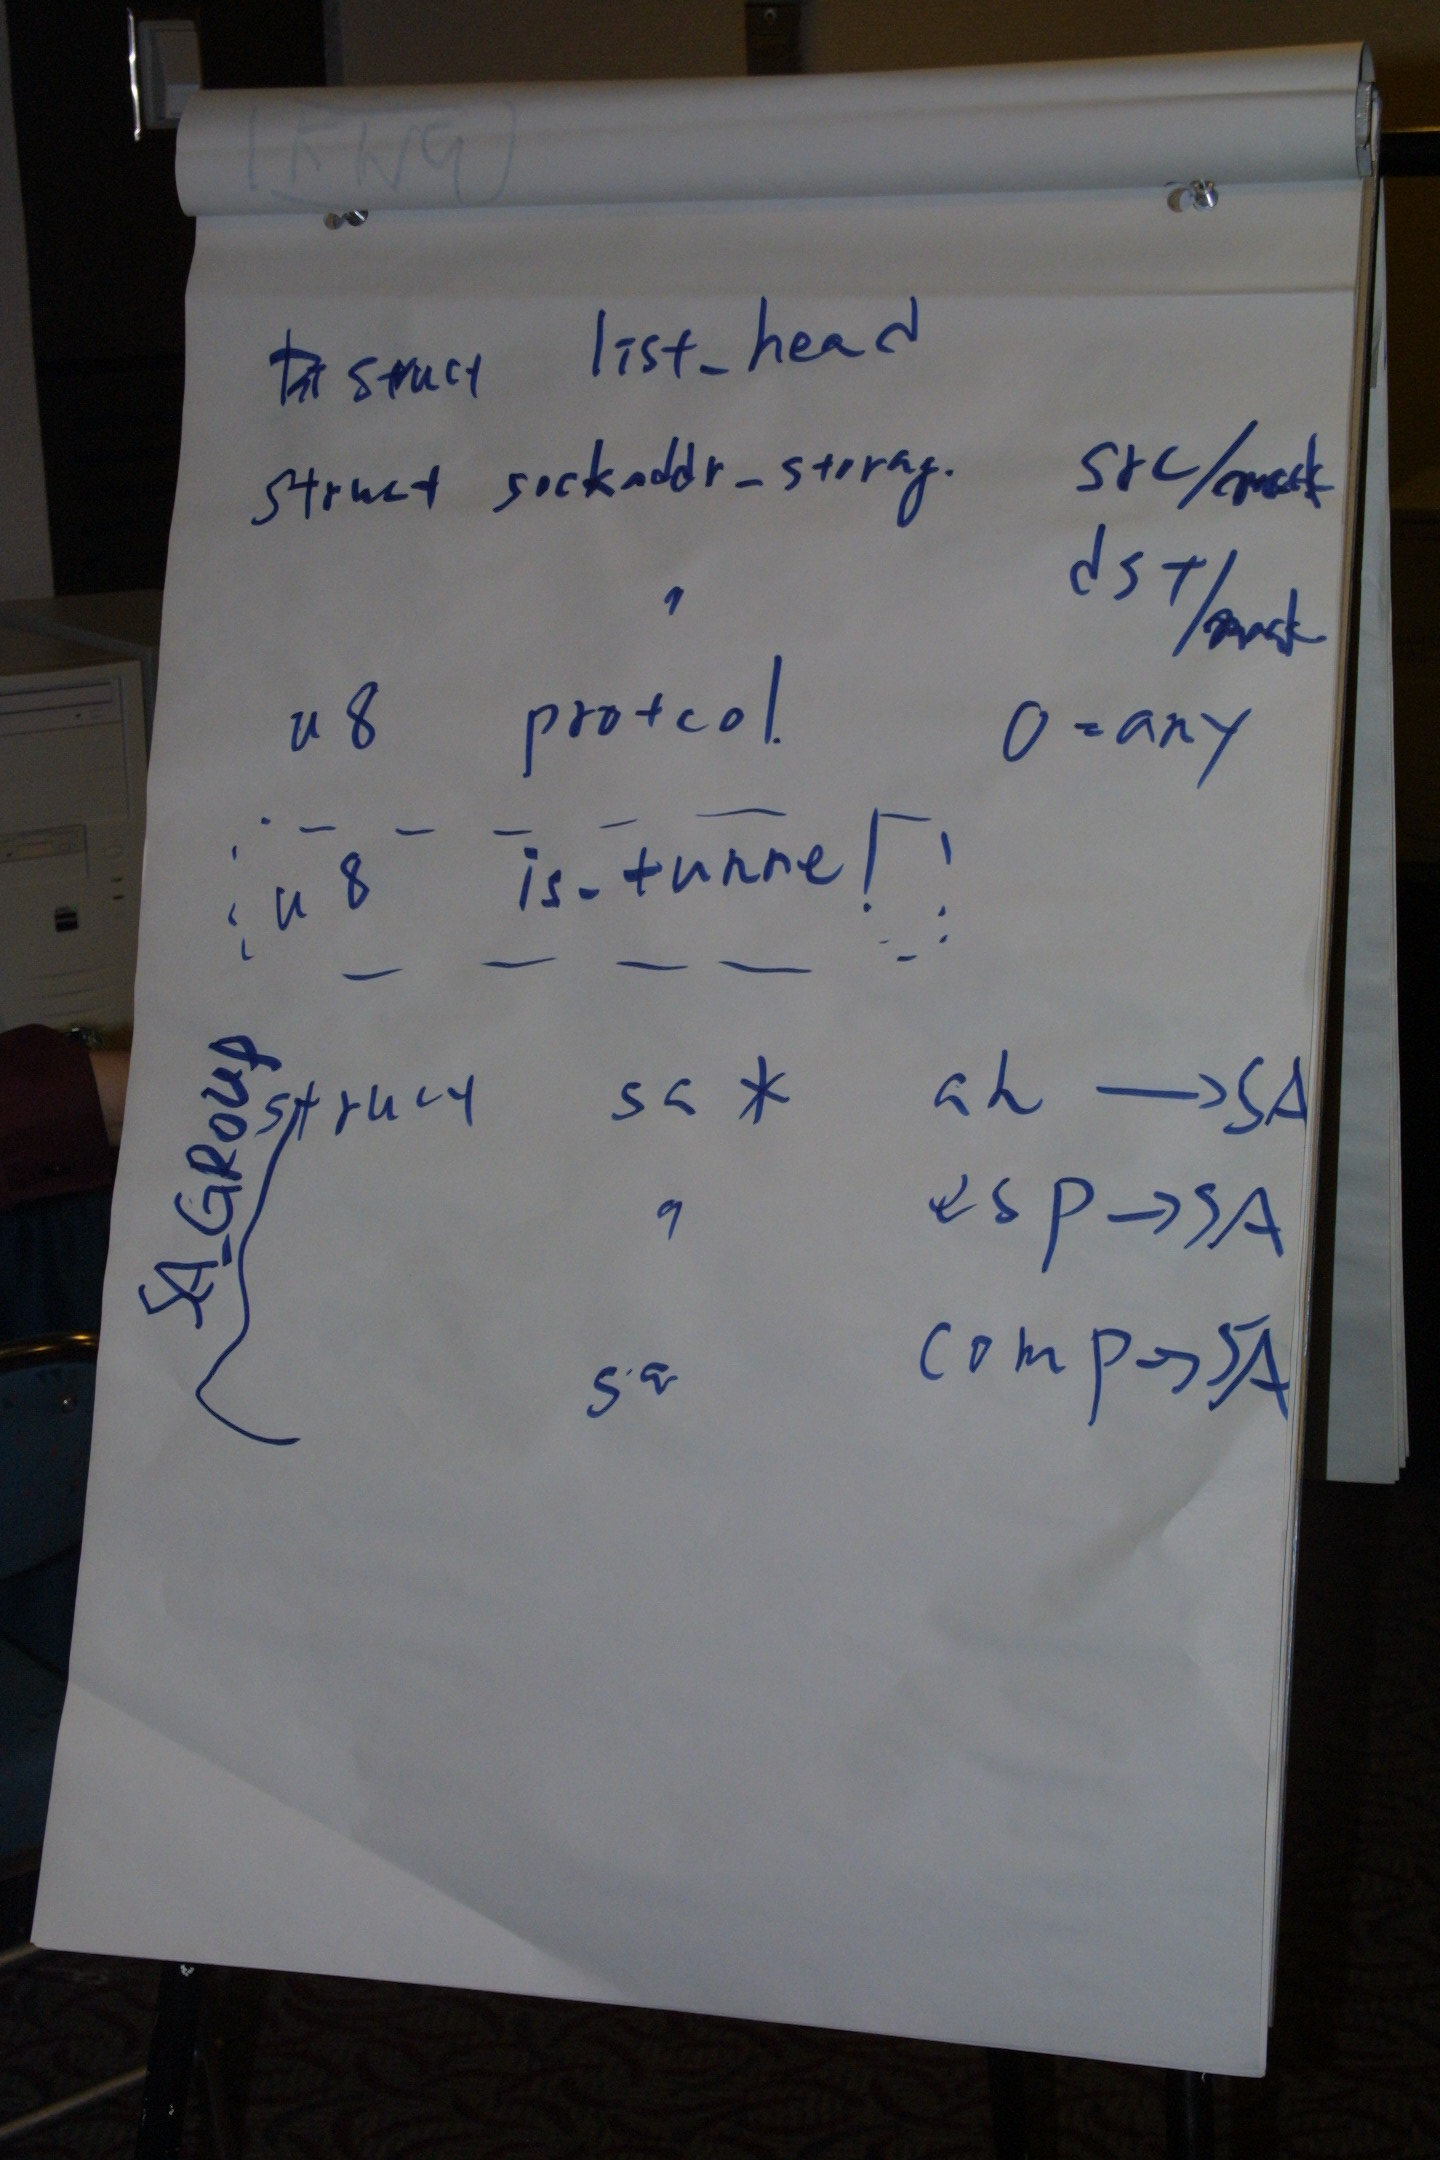 struct list_head
struct sockaddr_storag. src/mask
" dst/mask
u8 protcol. 0=any
u8 is_tunnel
SA_GROUP
struct sa * ah →SA
" esp→SA
sa comp→SA